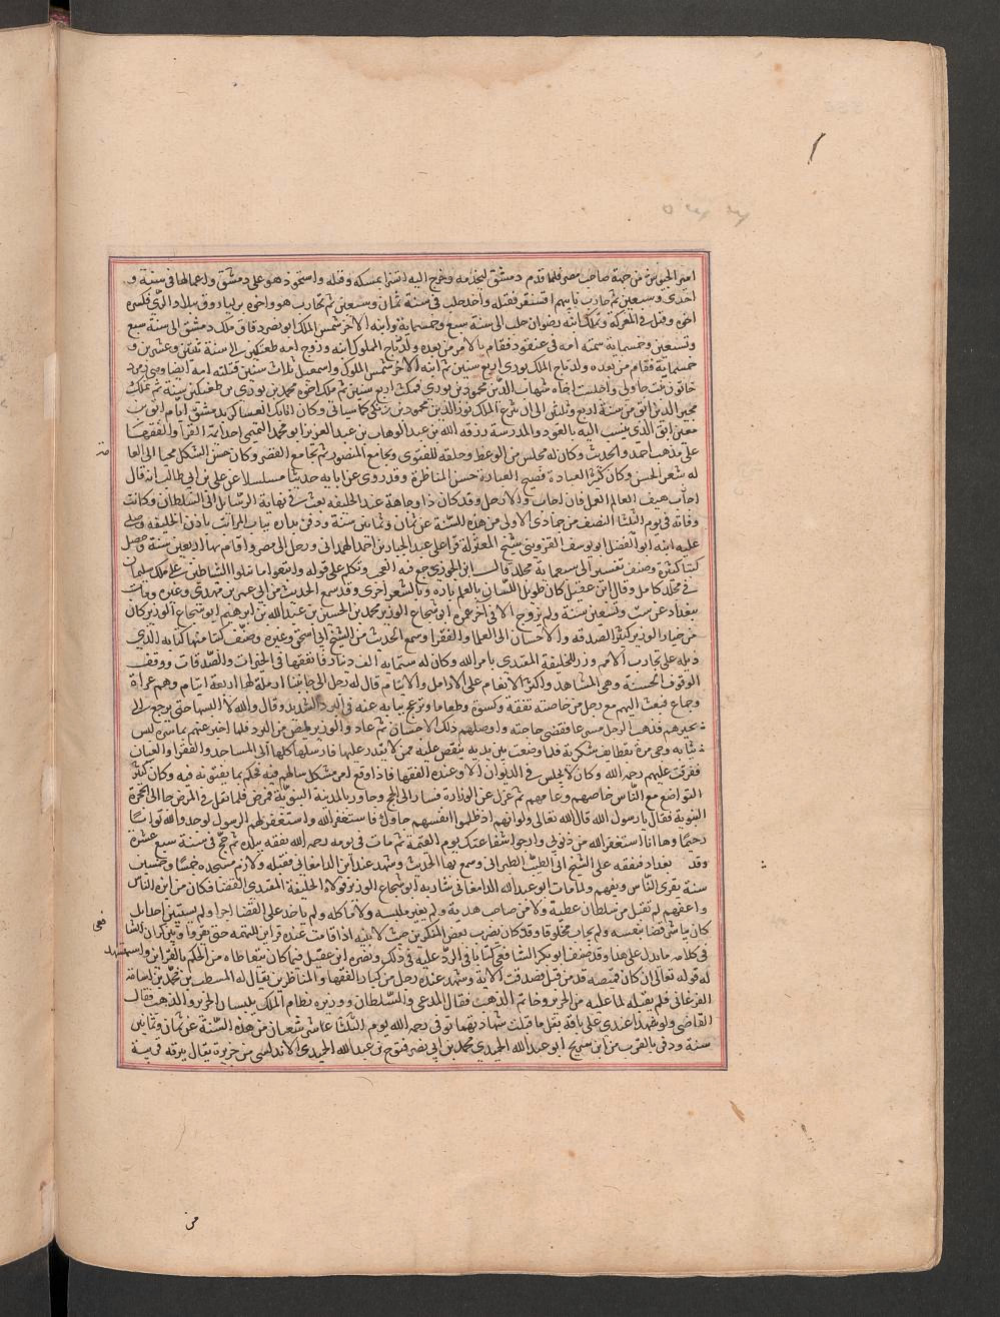 امير الجيوش من جهة صاحب مصر فلما قدم دمشق لنجدته وخرج اليه اتسز امسكه وقتله واستحوذ هو على دمشق واعمالها في سنة و
احدى وسبعين ثم حارب باسم اقسنقر فقتله واخذ حلب في سنة ثمان وسبعين ثم تحارب هو واخوه بركياروق ببلاد الري فكسره
اخوه وقتل في المعركة وتملك ابنه رضوان حلب الى سنة سبع وخمسماية وابنه الاخر شمس الملك ابو نصر دقاق ملك دمشق الى سنة سبع
وتسعين وخمسماية سمته امه في عنقود فقام بالامر من بعده ولد تاج الملوك ابنه وزوج امه طغتكين الى سنة ثنتين وعشرين و
خمسماية فقام من بعده ولد تاج الملك بوري اربع سنين ثم ابنه الاخر شمس الملوك واسمعيل ثلاث سنين قتلته امه ايضا وهي زمرد
خاتون بنت جاولي واجلست اخاه شهاب الدين محمود بن بوري فمكث اربع سنين ثم ملك اخوه محمد بن بوري بن طغتكين سنة ثم تملك
مجير الدين ابق من سنة اربع وثلثين الى ان نزع الملك نور الدين محمود بن زنكي كما سياتي وكان اتابك العساكر بدمشق ايام ابق بن
معين ابق الذي ينسب اليه بالغور والمدرسة رزقه الله بن عبد الوهاب بن عبد العزيز ابو محمد التميمي احد ايمة القرا والفقها
على مذهب احمد والحديث وكان له مجلس من الوعظ وحلقه للفتوى وبجامع المنصور ثم بجامع القصر وكان حسن الشكل محببا الى العا
له شعر الحسن وكان كثير العبادة فصيح العبارة حسن المناظرة وقد روى عن ابايه حديثا مسلسلا عن علي بن ابي طالب انه قال
هتف العلم بالعمل فان اجاب والا ارتحل وقد كان ذا وجاهة عند الخليفه يبعث في نهاية الرسايل الى السلطان وكانت
وفاته في يوم الثلثا النصف من جمادى الاولى من هذه السنة عن ثمان وثمانين سنة ودفن بداره بباب المراتب باذن الخليفه وصلى
عليه ابنه ابو الفضل ابو يوسف القزويني شيخ المعتزلة قرا على عبد الجبار بن احمد الهمداني ورحل الى مصر واقام بها اربعين سنة وحصل
كتبا كثيرة وصنف تفسيرا الى سبعماية مجلد قال ابن الجوزي جمع فيه العجب وتكلم على قوله واتبعوا ما تتلوا الشياطين على ملك سليمان
في مجلد كامل وقال ابن عقيل كان طويل اللسان بالعلم تارة وبالشعر اخرى وقد سمع الحديث من ابي عمر بن مهدي وغيره ومات
ببغداد عن ست وتسعين سنة ولم يتزوج الا في اخر عمره ابو شجاع الوزير محمد بن الحسين بن عبد الله بن ابرهيم ابو شجاع الوزير كان
من خيار الوزير كثير الصدقه والاحسان الى العلما والفقرا وسمع الحديث من الشيخ ابي اسحق وغيره وصنف كتبا منها كتابه الذي
ذيله على تجارب الامم وزر للخليفة المقتدي بامر الله وكان له ستمايه الف دينار فانفقها في الخيرات والصدقات ووقف
الوقوف الحسنة وبنى المشاهد واكثر الانعام على الارامل والايتام قال له رجل الى جانبنا ارملة لها اربعة ايتام وهم عراة
وجياع فبعث اليهم مع رجل من خاصته نفقة وكسوة وطعاما ونزع ثيابه عنه في البرد الشديد وقال والله لا البسها حتى ترجع الى
بخبرهم فذهب الرجل مسرعا فقضى حاجته واوصلهم ذلك الاحسان ثم عاد والوزير يركض من البرد فلما اخبر عنهم بما سرهم لبس
ثيابه وجي مرة بقطايف سكرية فلما وضعت بين يديه تنغص عليه بمن لا يقدر عليها فارسلها كلها الى المساجد والفقرا والعيان
ففرقت عليهم رحمه الله وكان لا يجلس في الديوان الا وعنده الفقها فاذا وقع امر مشكل سالهم فيه فحكم بما يفتونه فيه وكان كثير
التواضع مع الناس خاصهم وعامهم ثم عزل عن الوزارة فسار الى الحج وجاور بالمدينة النبوية فمرض فلما ثقل في المرض جا الى الحجرة
النبوية فقال يا رسول الله قال الله تعالى ولو انهم اذ ظلموا انفسهم جاوك فاستغفروا الله واستغفر لهم الرسول لوجدوا الله توابا
رحيما وها انا استغفر الله من ذنوبي وارجوا شفاعتك يوم القيمة ثم مات في يومه رحمه الله تفقه ببلده ثم حج في سنة سبع عشرة
وقدم بغداد فتفقه على الشيخ ابي الطيب الطبراني وسمع بها الحديث وشهد عند ابن الدامغاني فقبله ولازم مسجده خمسا وخمسين
سنة يقرى الناس ويفهم ولما مات ابو عبد الله الدامغاني اشار به ابو شجاع الوزير فولاه الخليفة المقتدي القضا فكان من انزه الناس
واعفهم لم يقبل من سلطان عطية ولا من صاحب هدية ولم يغير ملبسه ولا ماكله ولم ياخذ على القضا اجرا ولم يستنيب احدا بل
كان يباشر القضا بنفسه ولم يحاب مخلوقا وقد كان يضرب بعض المنكرين حيث لا بينه اذا قامت عنده قراين التهمة حتى يقروا ويذكر ان الشا
فعى
في كلامه ما يدل على هذا وقد صنف ابو بكر الشاشي كتابا في الرد عليه في ذلك ونصره ابن عقيل فيما كان يتعاطاه من الحكم بالقراين واستشهد
له قوله تعالى ان كان قميصه قد من قبل فصدقت الاية وشهد عنده رجل من كبار الفقها والمناظرين يقال له المشطب بن محمد بن اسامة
الفرغاني فلم يقبله لما عليه من الحرير وخاتم الذهب فقال المدعي والسلطان ووزيره نظام الملك يلبسان الحرير والذهب فقال
القاضي ولو شهدا عندي على باقة بقل ما قبلت شهادتهما توفى رحمه الله يوم الثلثا عاشر شعبان من هذه السنة عن ثمان وثمانين
سنة ودفن بالقرب من ابن سريج ابو عبد الله الحميدي محمد بن ابي نصر فتوح بن عبد الله الحميدي الاندلسي من جزيرة يقال يبرقه قريبة
من